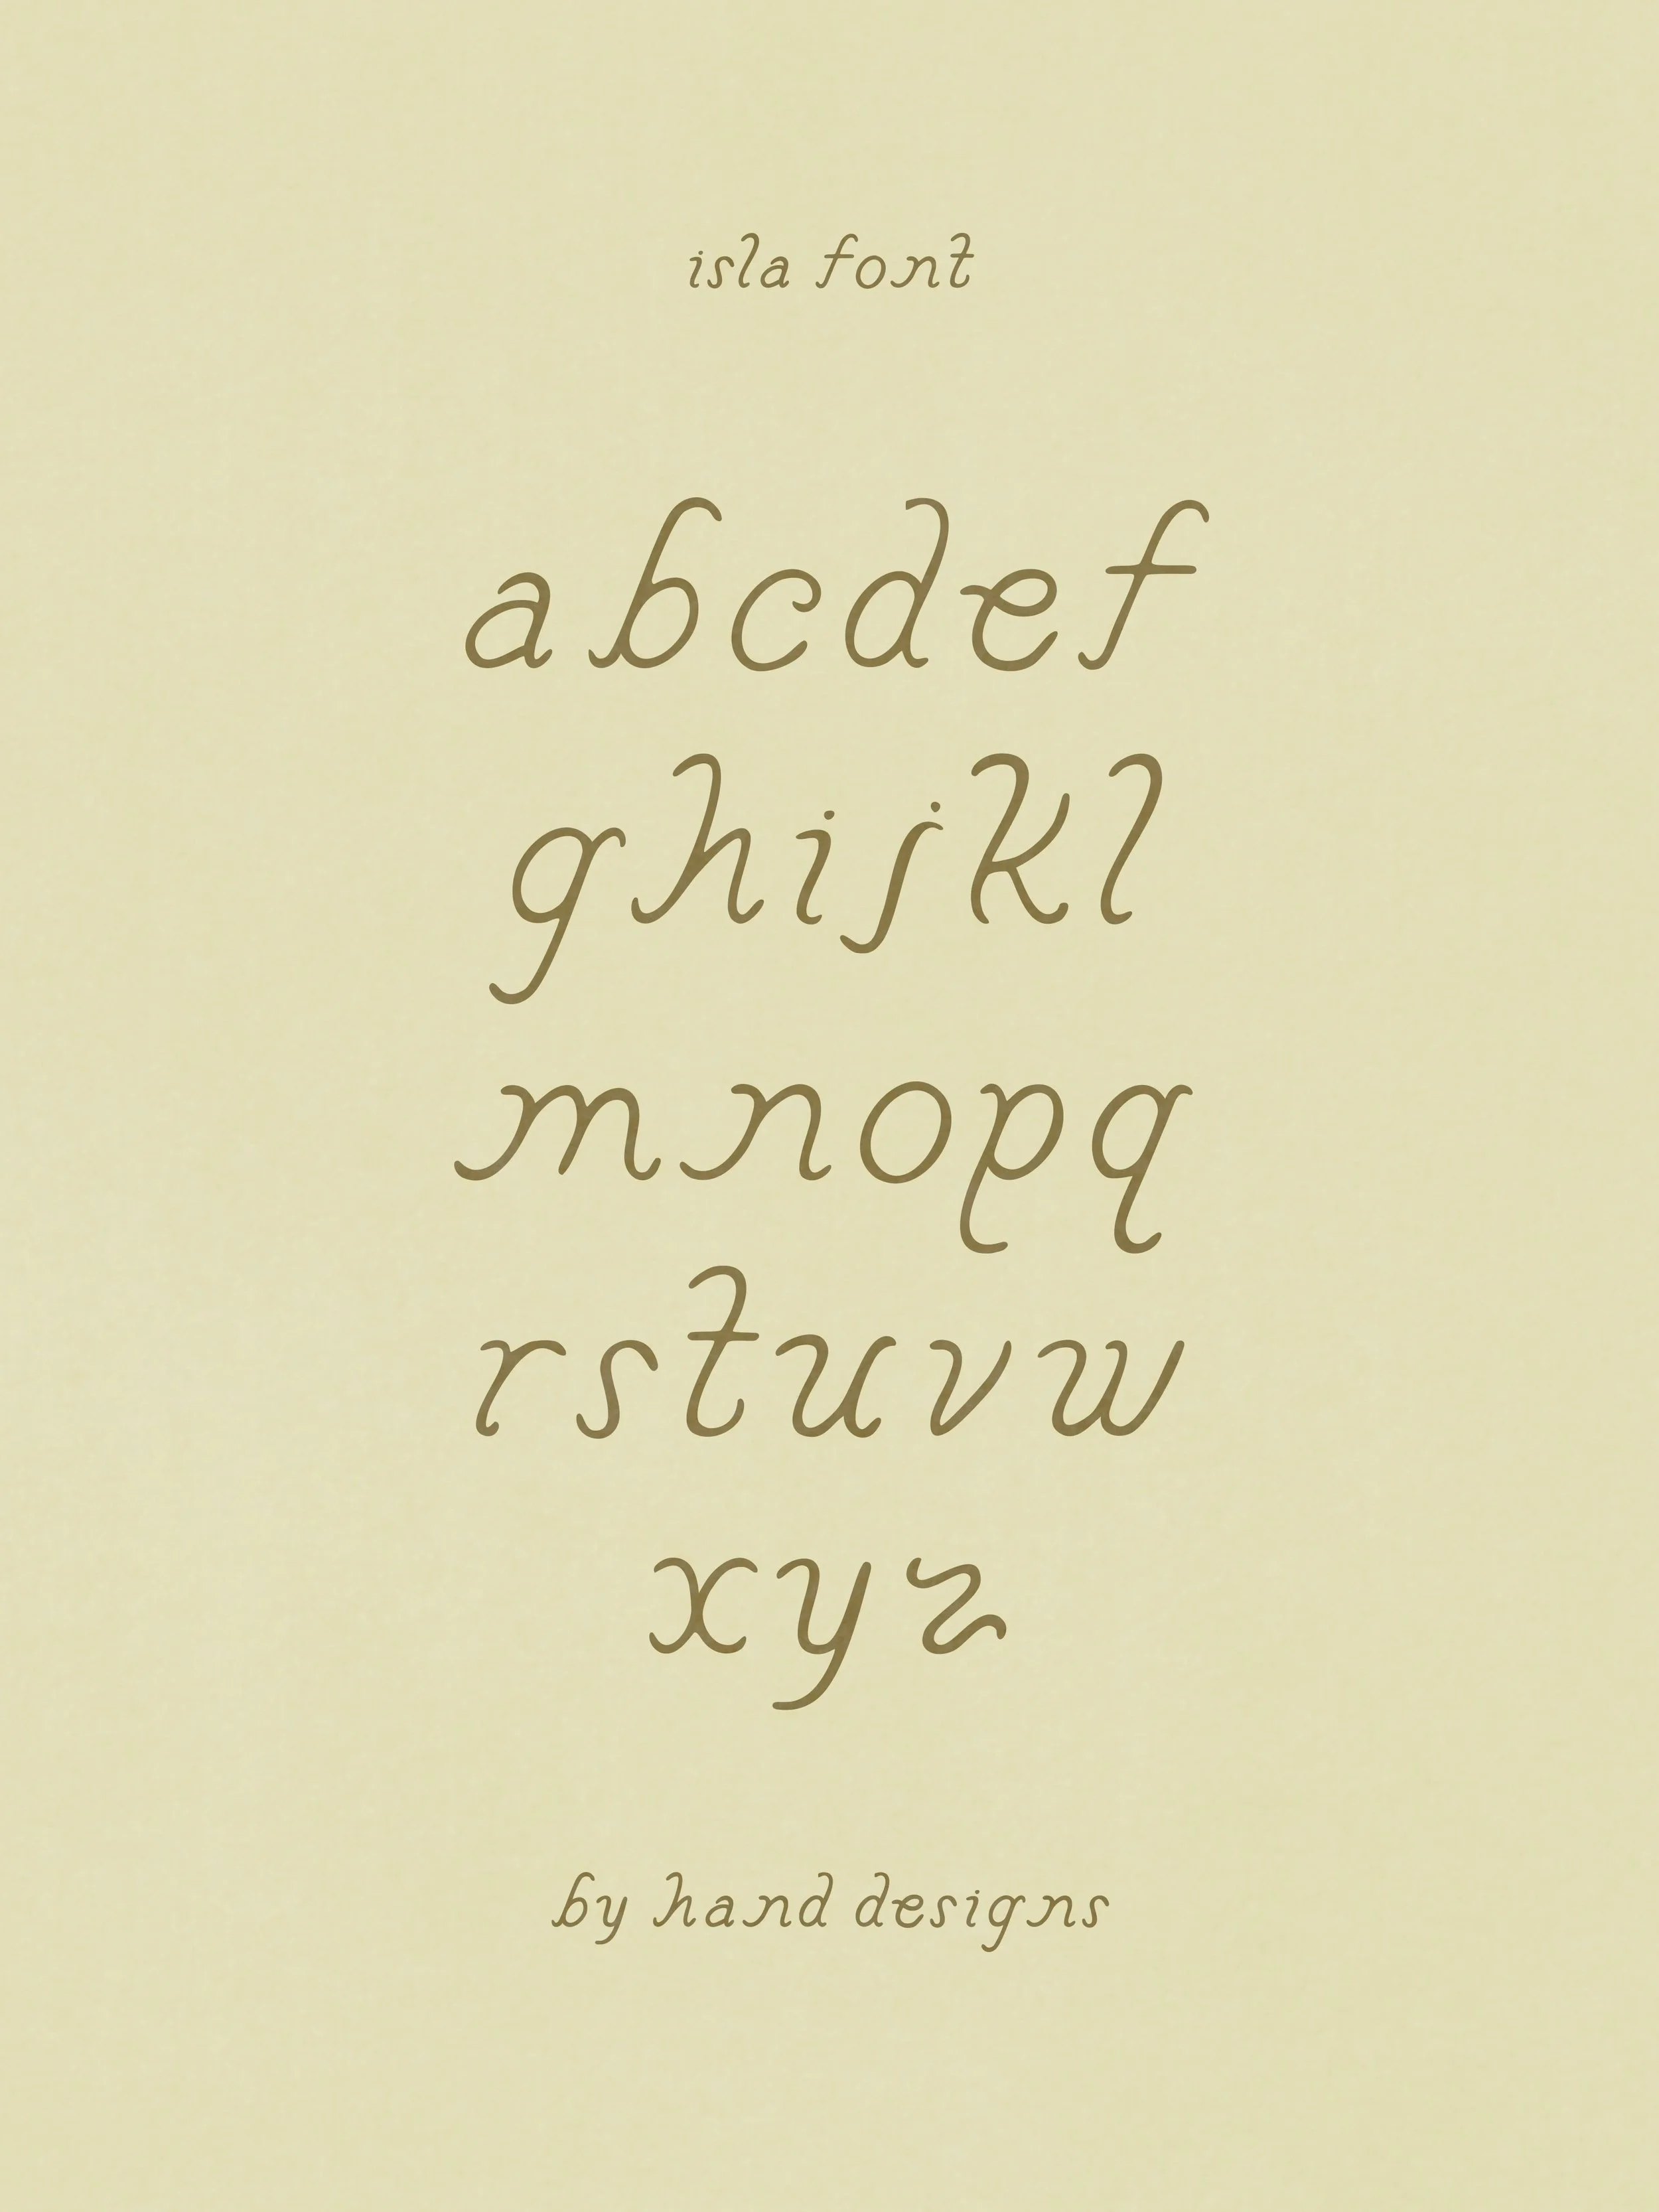 isla font
abcdef
ghijkl
mnopq
rstuvw
xyz
by hand designs